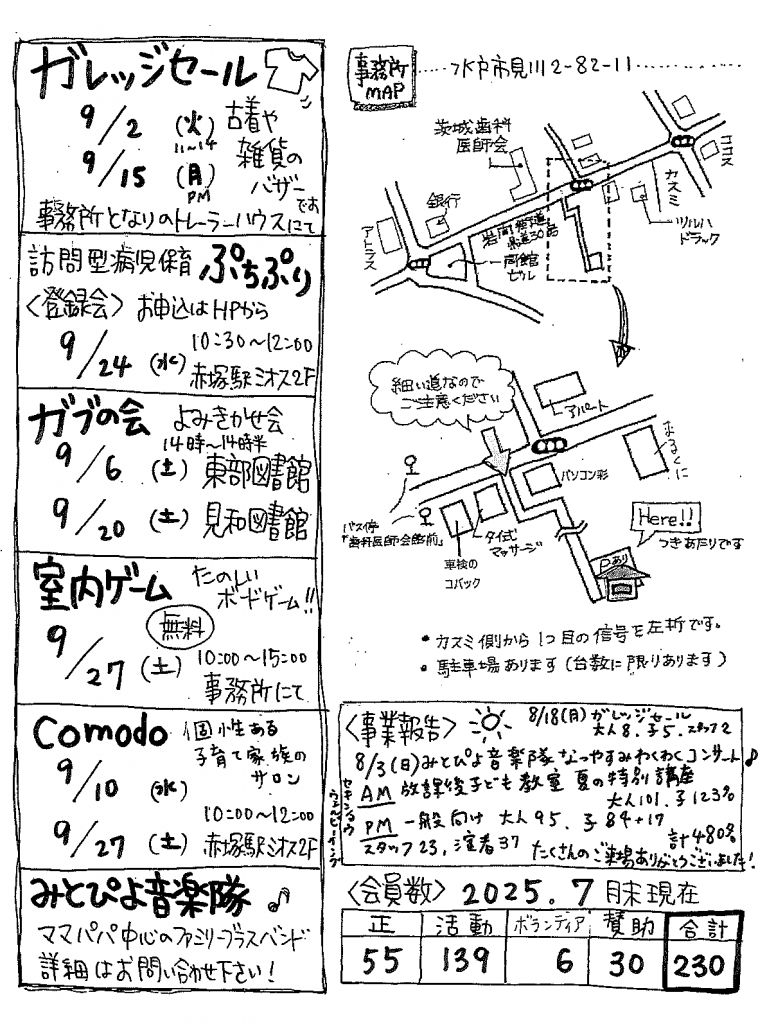 ガレッジセール
9/2 (火) 古着や
11~14 雑貨の
9/15 (月) バザー
PM です
事務所となりのトレーラーハウスにて
訪問型病児保育 ぷちぷり
〈登録会〉お申込はHPから
9/24 (水) 10:30~12:00
赤塚駅ミオス2F
ガブの会 よみきかせ会
14時~14時半
9/6 (土) 東部図書館
9/20 (土) 見和図書館
室内ゲーム たのしい
ボードゲーム!!
無料
9/27 (土) 10:00~15:00
事務所にて
Comodo 個性ある
子育て家族の
サロン
9/10 (水)
10:00~12:00
9/27 (土) 赤塚駅ミオス2F
みとぴよ音楽隊♪
ママパパ中心のファミリーブラスバンド
詳細はお問い合わせ下さい!
事務所
MAP
水戸市見川2-82-11
茨城歯科
医師会
ココス
カスミ
銀行
ツルハ
ドラック
アトラス
岩間街道
県道30号
ビル
細い道なので
ご注意ください
アパート
まるくに
パソコン彩
バス停
「歯科医師会館前」
タイ式
マッサージ
車検の
コバック
Here!!
つきあたりです
Pあり
・カスミ側から1つ目の信号を左折です。
・駐車場あります(台数に限りあります)
〈事業報告〉
8/18(月)ガレッジセール
大人8.子5.スタッフ2
8/3(日)みとぴよ音楽隊なつやすみわくわくコンサート♪
AM 放課後子ども教室 夏の特別講座
大人101.子123名
PM 一般向け 大人95.子84+17
スタッフ23,演者37 計480名
たくさんのご来場ありがとうございました!
〈会員数〉2025.7月末現在
正 活動 ボランティア 賛助 合計
55 139 6 30 230